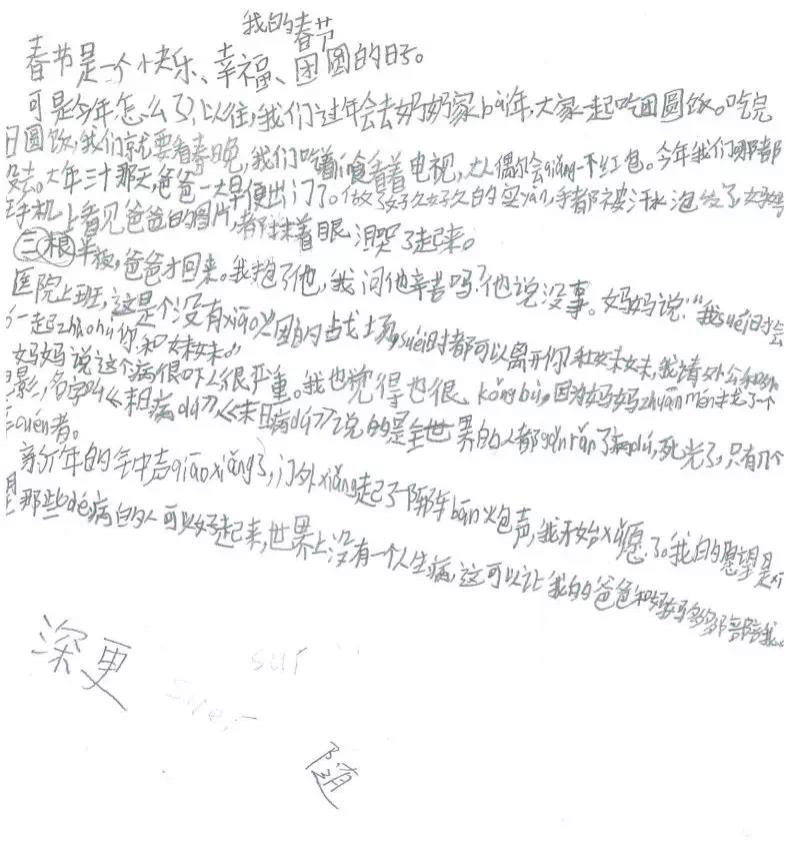 我的春节
春节是一个快乐、幸福、团圆的日子。
可是今年怎么了,以往,我们过年会去奶奶家bài年,大家一起吃团圆饭。吃完
圆饭,我们就要看春晚,我们吃着食看着电视,大人偶尔会qiǎng一下红包。今年我们哪都
没去。大年三十那天,爸爸一大早便出门了。做了好久好久的实yàn,手都被汗水泡
手机上看见爸爸的图片,都抹着眼泪哭了起来。
三根半夜,爸爸才回来。我抱了他,我问他辛苦吗?他说没事。妈妈说:“我suéi时会
医院上班,这是个没有xiāo火因的战场,suéi时都可以离开你和妹妹,我请外公和外
一起zhào hù你和妹妹。”
妈妈说这个病很吓人很严重。我也觉得也很kǒng bù,因为妈妈zhuān mén找了一个
影,名字叫《末日病dú》《末日病dú》说的是全世界的人都gǎn rǎn了病dú,死光了,只有几个
者。
新年的钟声qiāo xiǎng了,门外xiǎng起了一阵阵biān火包声,我开始xǔ愿了。我的愿望是
那些dé病的人可以好起来,世界上没有一个人生病,这可以让我的爸爸和妈妈多多陪陪我。
深更
sur
suer
随